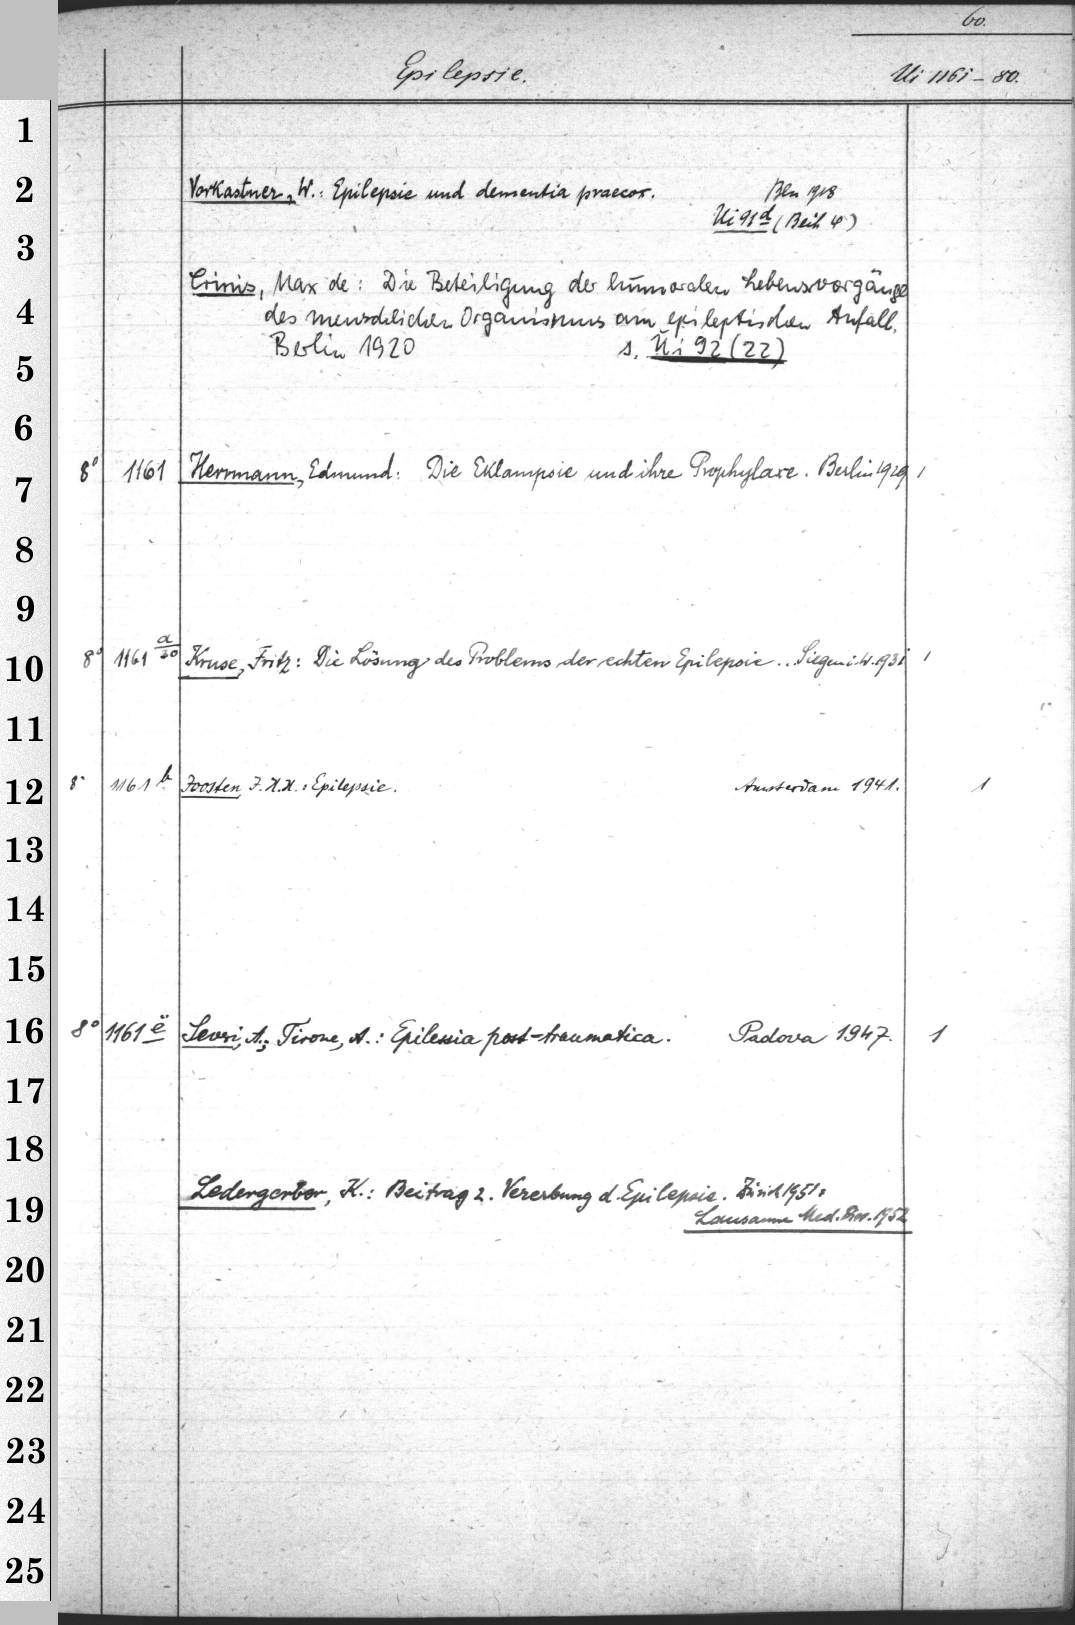 60.
Epilepsie. Ui 1161-80.
1
2 Vorkastner, W.: Epilepsie und dementia praecox. Bln 1918
Ui 91d (Beih 4)
3
Crinis, Max de: Die Beteiligung der humoralen Lebensvorgänge
4 des menschlichen Organismus am epileptischen Anfall.
5 Berlin 1920 s. Ui 92 (22)
6
7 8° 1161 Herrmann, Edmund: Die Eklampsie und ihre Prophylaxe. Berlin 1929 1
8
9
10 8° 1161 a/20 Kruse, Fritz: Die Lösung des Problems der echten Epilepsie.. Siegen i.W. 1931 1
11
12 8° 1161 b Joosten, J.H.H.: Epilepsie. Amsterdam 1941. 1
13
14
15
16 8° 1161 e Severi, A.; Tirone, A.: Epilessia post-traumatica. Padova 1947. 1
17
18
19 Ledergerber, K.: Beitrag z. Vererbung d. Epilepsie. Zürich 1951:
Lausanne Med. Diss. 1952
20
21
22
23
24
25